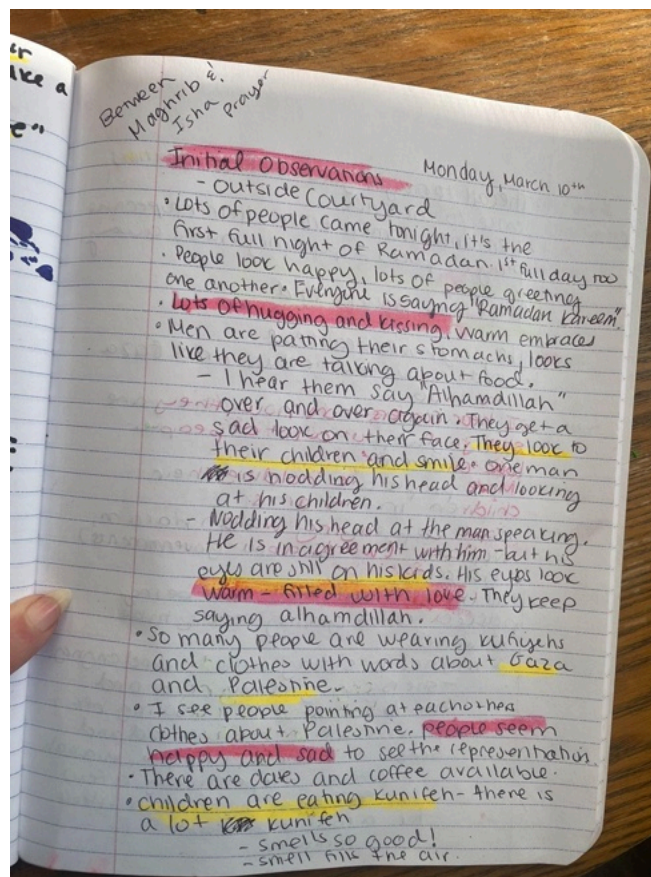 er
ike a
e"
Between
Maghrib &
Isha prayer
Initial Observations Monday, March 10th
- outside courtyard
• Lots of people came tonight, it's the
first full night of Ramadan. 1st full day too
• People look happy, lots of people greeting
one another. Everyone is saying "Ramadan Kareem".
• Lots of hugging and kissing, warm embraces
• Men are patting their stomachs, looks
like they are talking about food.
- I hear them say "Alhamdillah"
over and over again. They get a
sad look on their face. They look to
their children and smile. one man
is nodding his head and looking
at his children.
- Nodding his head at the man speaking.
He is in agreement with him - but his
eyes are still on his kids. His eyes look
warm - filled with love. They keep
saying alhamdillah.
• So many people are wearing kufiyehs
and clothes with words about Gaza
and Palestine.
• I see people pointing at eachothers
clothes about Palestine. people seem
happy and sad to see the representation.
• There are dates and coffee available.
• children are eating kunifeh - there is
a lot kunifeh
- smells so good!
- smell fills the air.